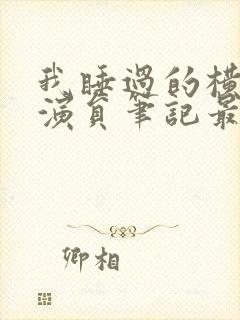 我睡過的橫
演員筆記最
卿相